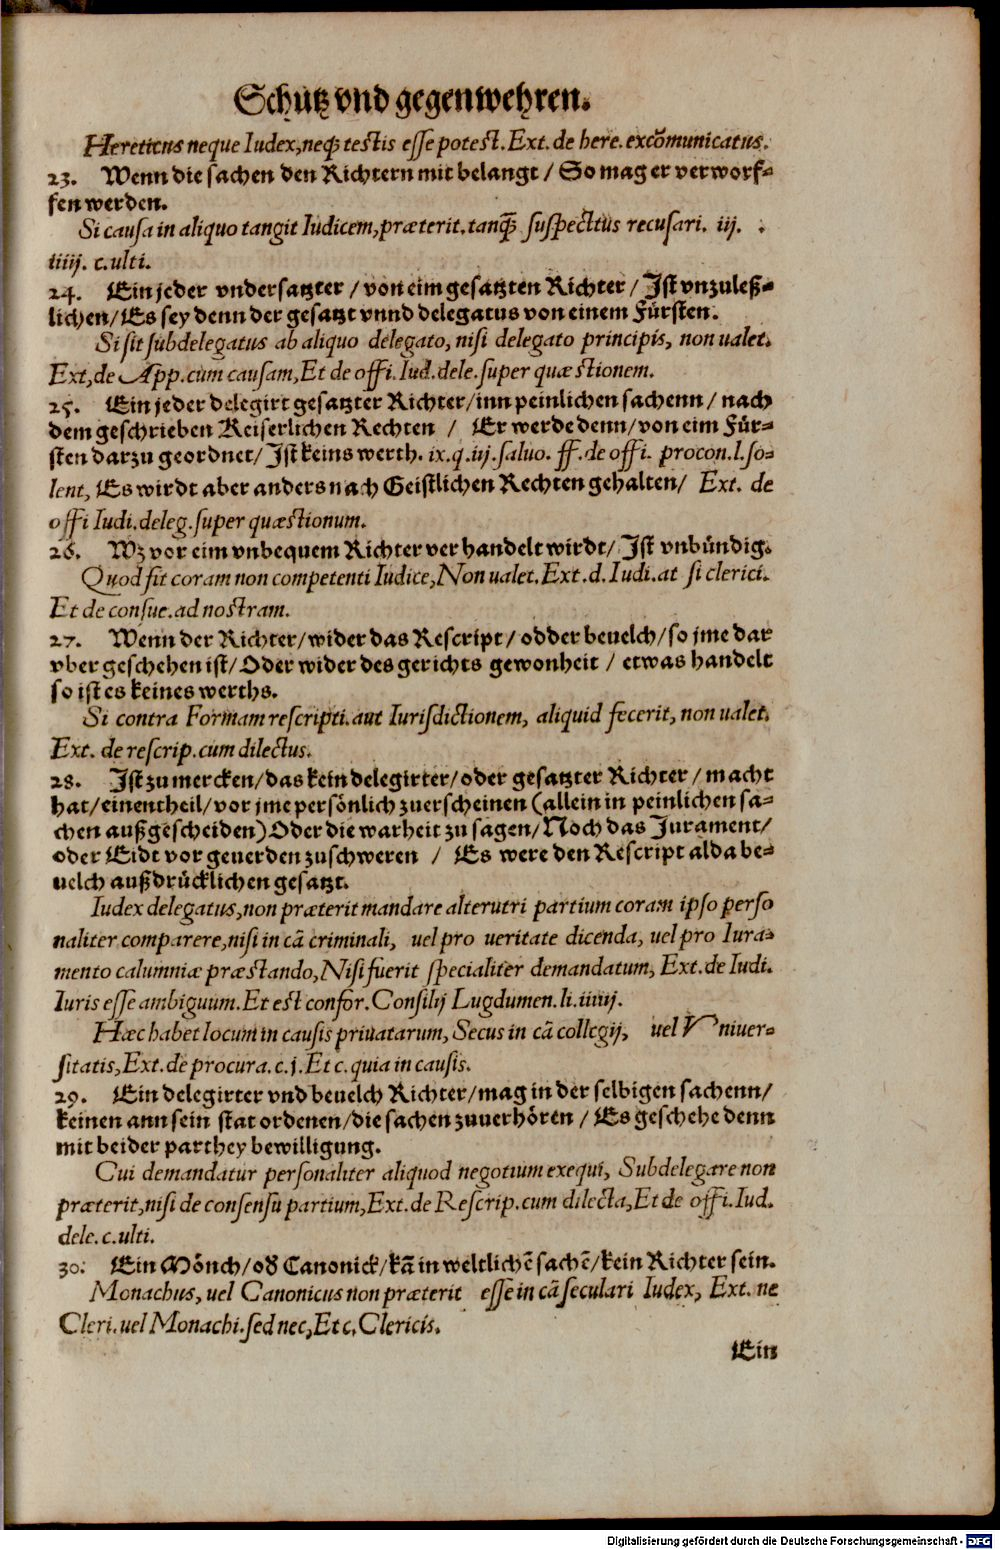 Schutz vnd gegenwehren.
Hereticus neque Iudex, neq; testis esse potest. Ext. de here. excõmunicatus.
23. Wenn die sachen den Richtern mit belangt / So mag er verworf-
fen werden.
Si causa in aliquo tangit Iudicem, præterit. tanq̃ suspectus recusari. iij. .
iiij. c. ulti.
24. Ein jeder vndersatzter / von eim gesatzten Richter / Jst vnzuleß-
lichen / Es sey denn der gesatzt vnnd delegatus von einem Fürsten.
Si sit subdelegatus ab aliquo delegato, nisi delegato principis, non ualet.
Ext, de App. cum causam, Et de offi. Iud. dele. super quæstionem.
25. Ein jeder delegirt gesatzter Richter / inn peinlichen sachenn / nach
dem geschrieben Keiserlichen Rechten / Er werde denn / von eim Für-
sten darzu geordnet / Jst keins werth. ix. q. iij. saluo. ff. de offi. procon. l. so-
lent, Es wirdt aber anders nach Geistlichen Rechten gehalten / Ext. de
offi Iudi. deleg. super quæstionum.
26. Wz vor eim vnbequem Richter verhandelt wirdt / Jst vnbündig.
Quod fit coram non competenti Iudice, Non ualet. Ext. d. Iudi. at si clerici.
Et de consue. ad nostram.
27. Wenn der Richter / wider das Rescript / odder beuelch / so jme dar
vber geschehen ist / Oder wider des gerichts gewonheit / etwas handelt
so ist es keines werths.
Si contra Formam rescripti. aut Iurisdictionem, aliquid fecerit, non ualet.
Ext. de rescrip. cum dilectus.
28. Jst zu mercken / das kein delegirter / oder gesatzter Richter / macht
hat / einen theil / vor jme persönlich zuerscheinen (allein in peinlichen sa-
chen außgescheiden) Oder die warheit zu sagen / Noch das Jurament /
oder Eidt vor geuerden zuschweren / Es were den Rescript alda be-
uelch außdrücklichen gesatzt.
Iudex delegatus, non præterit mandare alterutri partium coram ipso perso
naliter comparere, nisi in cã criminali, uel pro ueritate dicenda, uel pro Iura-
mento calumniæ præstando, Nisi fuerit specialiter demandatum, Ext. de Iudi.
Iuris esse ambiguum. Et est confor. Consilij Lugdumen. li. iiiij.
Hæc habet locum in causis priuatarum, Secus in cã collegij, uel Vniuer-
sitatis, Ext. de procura. c. j. Et c. quia in causis.
29. Ein delegirter vnd beuelch Richter / mag in der selbigen sachenn /
keinen ann sein stat ordenen / die sachen zuuerhören / Es geschehe denn
mit beider parthey bewilligung.
Cui demandatur personaliter aliquod negotium exequi, Subdelegare non
præterit, nisi de consensu partium, Ext. de Rescrip. cum dilecta, Et de offi. Iud.
dele. c. ulti.
30. Ein Mönch / oď Canonick / kã in weltlichẽ sachẽ / kein Richter sein.
Monachus, uel Canonicus non præterit esse in cã seculari Iudex, Ext. ne
Cleri. uel Monachi. sed nec, Et c, Clericis.
Ein
Digitalisierung gefördert durch die Deutsche Forschungsgemeinschaft - DFG